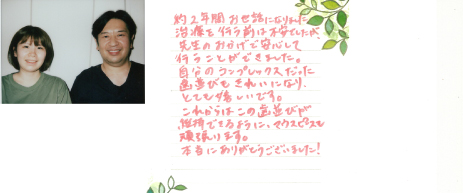 約2年間お世話になりました
治療を行う前は不安でしたが、
先生のおかげで安心して
行うことができました。
自分のコンプレックスだった
歯並びもきれいになり、
とても嬉しいです。
これからはこの歯並びが
維持できるように、マウスピスも
頑張ります。
本当にありがとうございました！